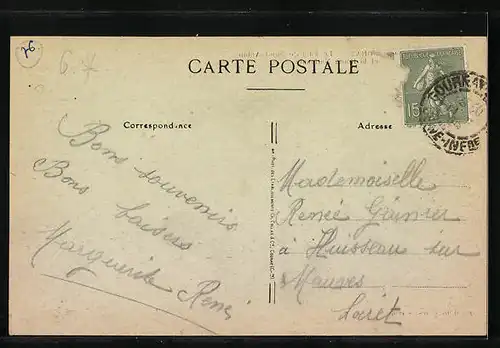 76
CARTE POSTALE
Correspondance
Adresse
15
Bons souvenirs
Bons baisers
Marguerite René
Mademoiselle
Renée Garnier
à Huisseau sur
Mauves
Loiret